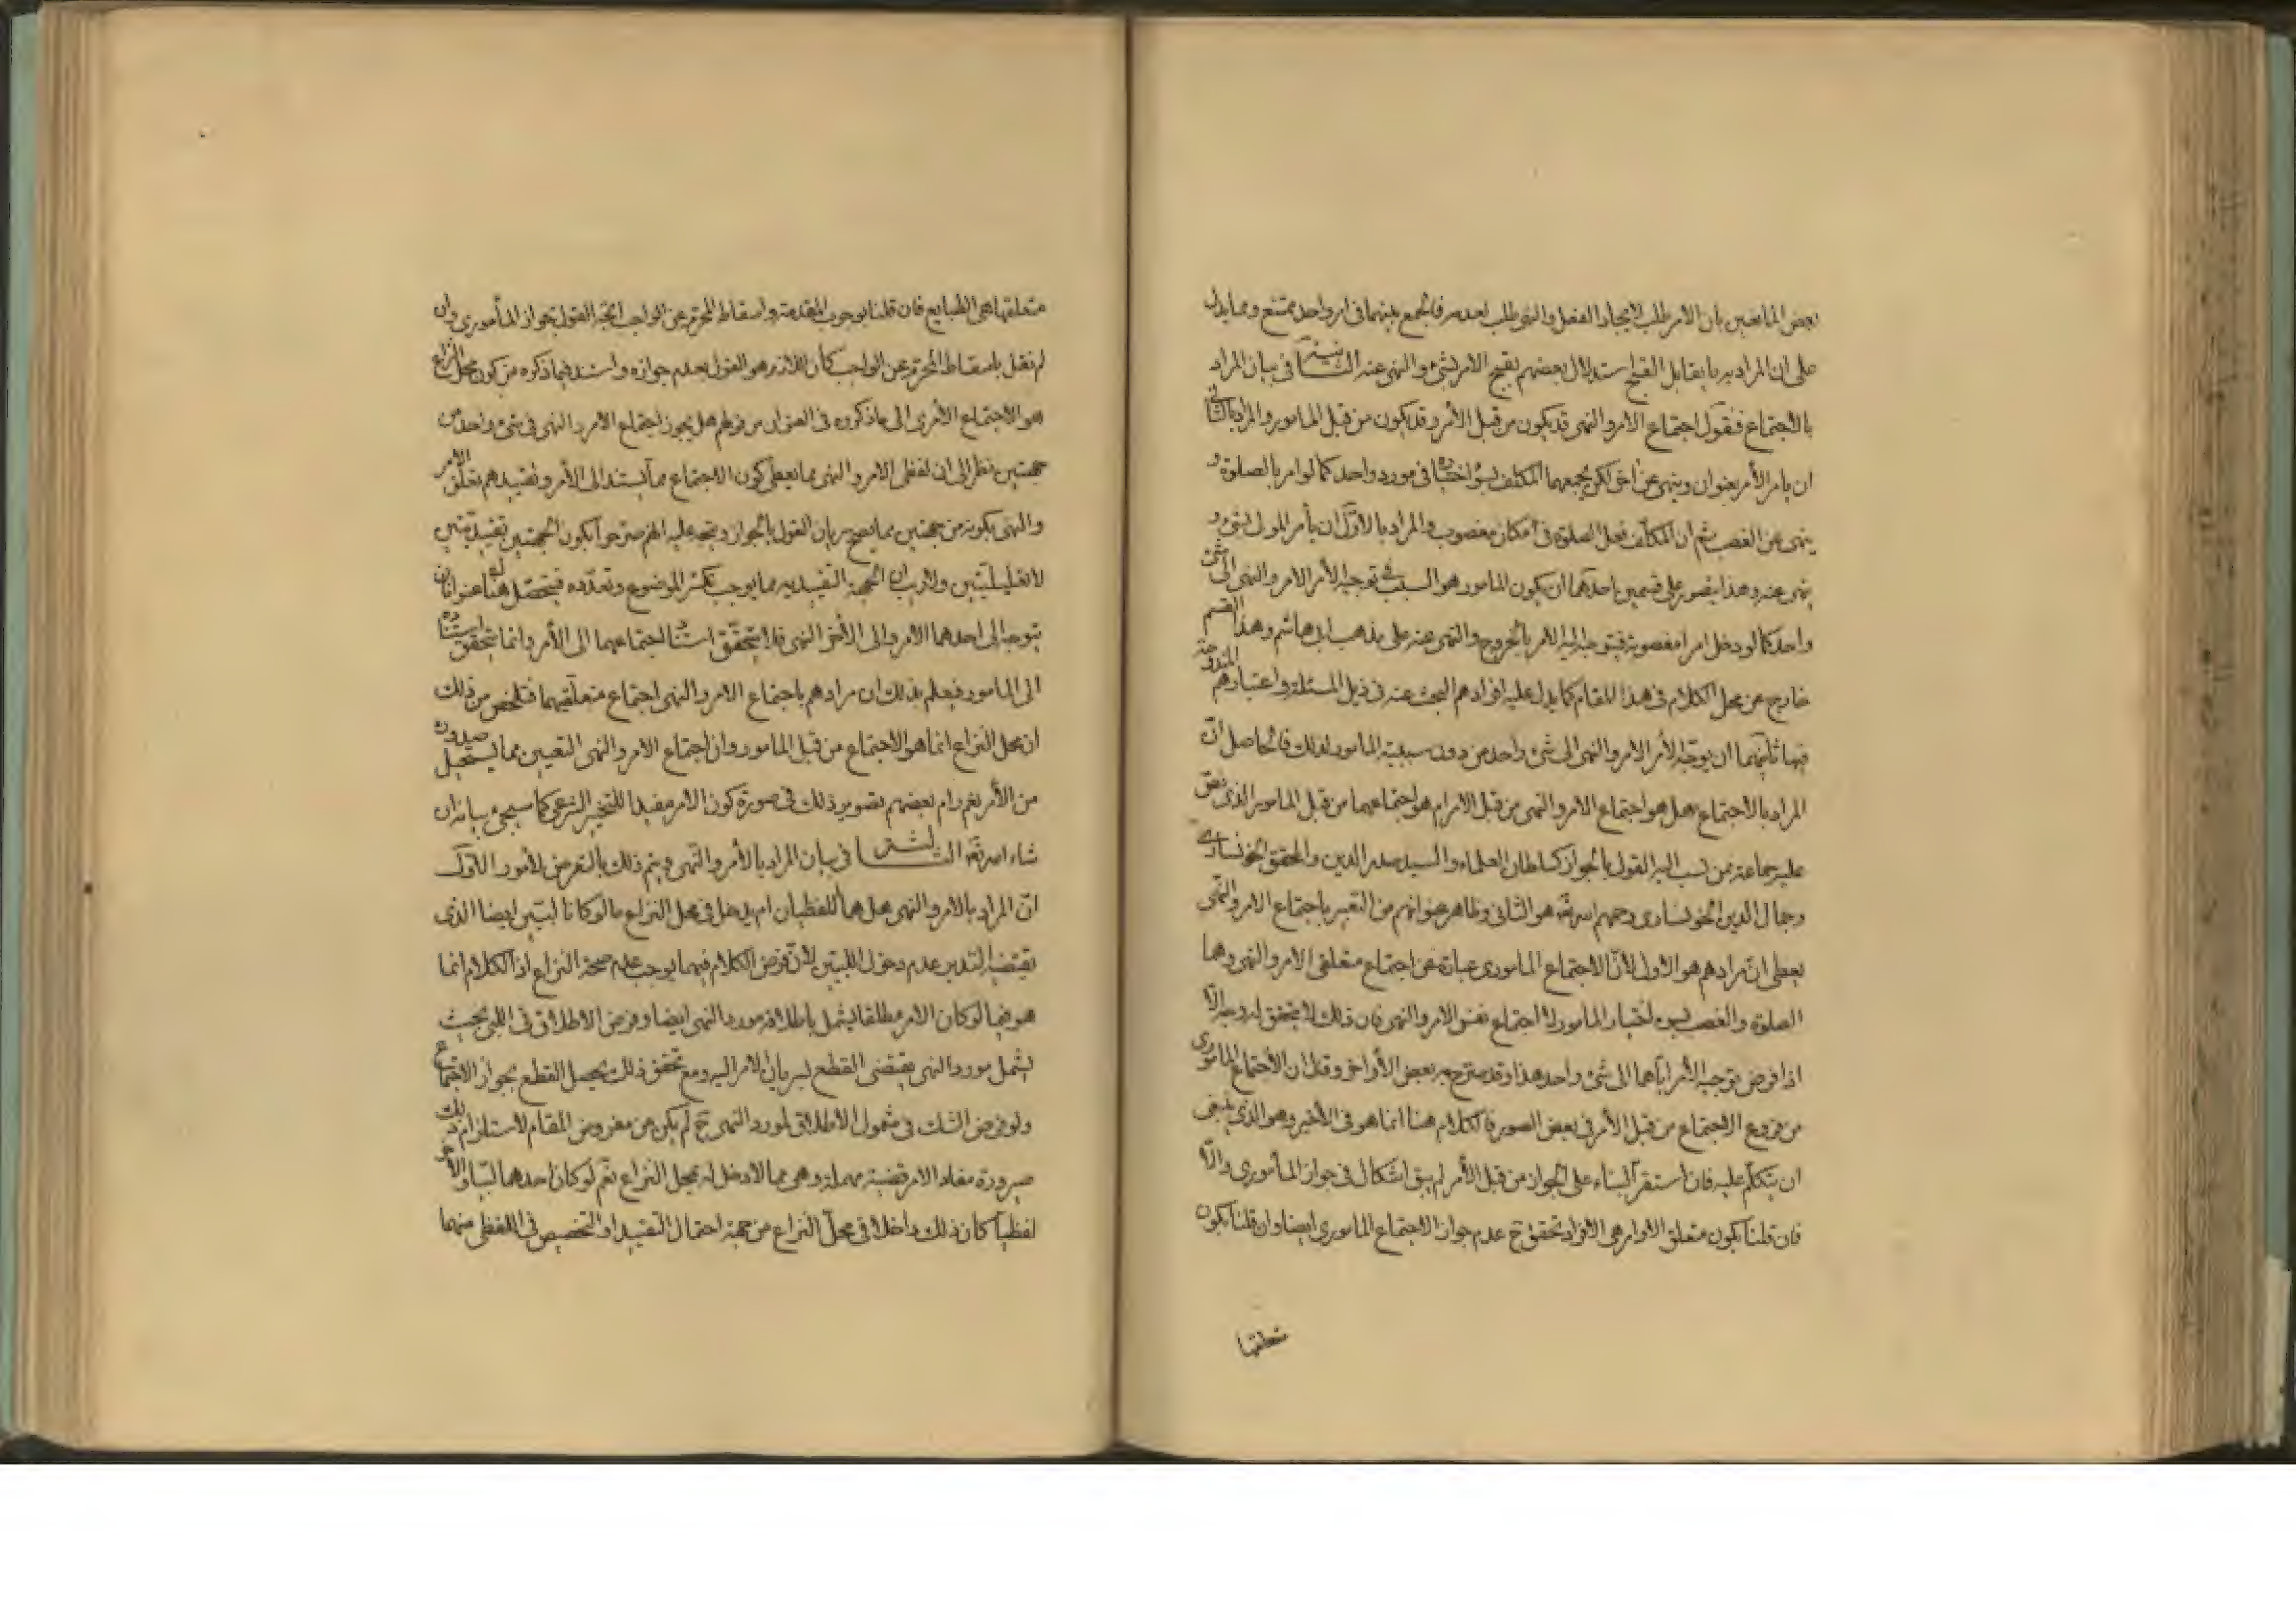 بعض المانعين بان الامر طلب لايجاد الفعل والنهى طلب لعدمه فالجمع بينهما فى امر واحد ممتنع ومما يدل
على ان المراد به ما يقابل القبيح استدلال بعضهم بقبح الامر بشئ والنهى عنه الثانية فى بيان المراد
بالاجتماع فنقول اجتماع الامر والنهى قد يكون من قبل الآمر وقد يكون من قبل المامور والمراد بالثانى
ان يامر الآمر بعنوان وينهى عن اخر لكن يجمعهما المكلف بسوء اختياره فى مورد واحد كما لو امر بالصلوة و
ينهى عن الغصب ثم ان المكلف فعل الصلوة فى مكان مغصوب والمراد بالاول ان يأمر المولى بشئ و
ينهى عنه وهذا يتصور على قسمين احدهما ان يكون المامور هو السبب فى توجيه الآمر الامر والنهى الى شئ
واحد كما لو دخل مغصوبة فيتوجه اليه الامر بالخروج والنهى عنه على مذهب ابى هاشم وهذا القسم
خارج عن محل الكلام فى هذا المقام كما يدل عليه افرادهم البحث عنه فى ذيل المسئلة واعتبارهم المندوحة
فيها ثانيهما ان يوجه الآمر الامر والنهى الى شئ واحد من دون سببية المامور لذلك فالحاصل ان
المراد بالاجتماع هل هو اجتماع الامر والنهى من قبل الآمر ام هو اجتماعهما من قبل المامور الذى نص
عليه جماعة ممن نسب اليه القول بالجواز كسلطان العلماء والسيد صدر الدين والمحقق الخونسارى
وجمال الدين الخونسارى رحمهم الله تعه هو الثانى وظاهر عنوانهم من التعبير باجتماع الامر والنهى
يعطى ان مرادهم هو الاول لان الاجتماع المامورى عبارة عن اجتماع متعلقى الامر والنهى وهما
الصلوة والغصب باختيار المامور لا اجتماع نفس الامر والنهى فان ذلك لا يتحقق الا
اذا فرض توجيه الآمر اياهما الى شئ واحد هذا وقد صرح بعض الأواخر وقال ان الاجتماع المامورى
من فروع الاجتماع من قبل الآمر فى بعض الصور فالكلام هنا انما هو فى الاخير وهو الذى ينبغى
ان يتكلم عليه فان استقر البناء على الجواز من قبل الآمر لم يبق اشكال فى جواز المأمورى والا
فان قلنا بكون متعلق الاوامر هى الافراد تحقق ح عدم جواز الاجتماع المامورى ايضا وان قلنا بكون
متعلقها
متعلقها هى الطبايع فان قلنا بوجوب المقدمة واسقاط المحرم عن الواجب اتجه القول بجواز المأمورى وان
لم نقل باسقاط المحرم عن الواجب كان اللازم هو القول بعدم جوازه واستند فيما ذكره من كون محل النزاع
هو الاجتماع الآمرى الى ما ذكروه فى العنوان من قولهم هل يجوز اجتماع الامر والنهى فى شئ واحد من
جهتين نظرا الى ان لفظى الامر والنهى مما يعطى كون الاجتماع مما يستند الى الآمر وتقييدهم تعلق الامر
والنهى بكونه من جهتين مما يصح سريان القول بالجواز ويتجه عليه انهم صرحوا بكون الجهتين تقييديتين
لا تعليليتين ولا ريب ان الجهة التقييدية مما يوجب تكثر الموضوع وتعدده فيتحصل هناك عنوانان
يتوجه الى احدهما الامر والى الأخر النهى فلا يتحقق استناد اجتماعهما الى الآمر وانما يتحقق استناده
الى المامور فيعلم بذلك ان مرادهم باجتماع الامر والنهى اجتماع متعلقيهما فتلخص من ذلك
ان محل النزاع انما هو الاجتماع من قبل المامور وان اجتماع الامر والنهى مما يستحيل صدوره
من الآمر نعم رام بعضهم تصوير ذلك فى صورة كون الامر مفيدا للتخيير الشرعى كما سيجئ بيانه ان
شاء الله تعه الثالثة فى بيان المراد بالأمر والنهى ويتم ذلك بالتعرض لأمور الاول
ان المراد بالامر والنهى هل هما اللفظيان ام يدخل فى محل النزاع ما لو كانا لبيين ايضا الذى
يقتضيه التدبر عدم دخول اللبيين لان فرض الكلام فيهما يوجب عدم صحة النزاع اذ الكلام انما
هو فيما لو كان الامر مطلقا ليشمل باطلاقه مورد النهى ايضا وفرض الاطلاق فى اللبى بحيث
يشمل مورد النهى يقتضى القطع بسريان الامر اليه ومع تحقق ذلك يحصل القطع بجواز الاجتماع
ولو فرض الشك فى شمول الاطلاق لمورد النهى ح لم يكن من مفروض المقام لاستلزام ذلك
صيرورة مفاد الامر قضية مهملة وهى مما لا دخل له بمحل النزاع نعم لو كان احدهما لبيا والاخر
لفظيا كان ذلك داخلا فى محل النزاع من جهة احتمال التقييد او التخصيص فى اللفظى منهما